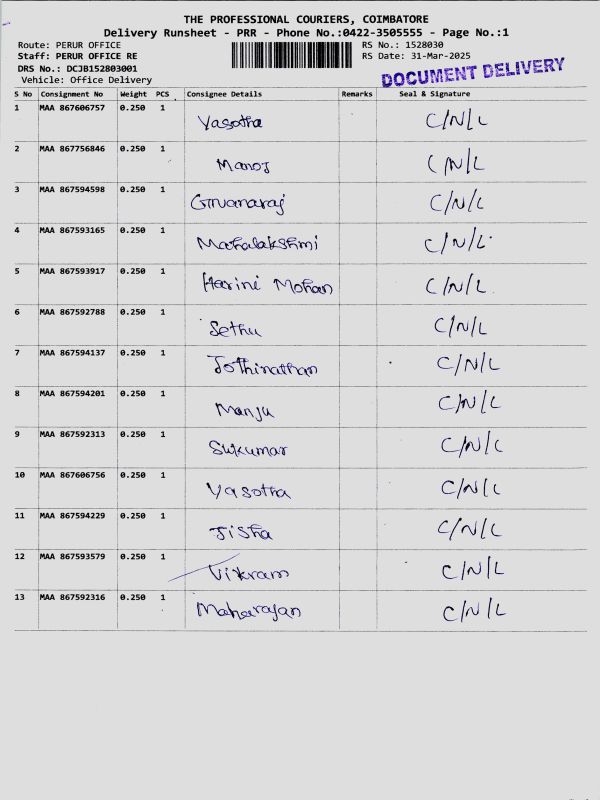 THE PROFESSIONAL COURIERS, COIMBATORE
Delivery Runsheet - PRR - Phone No.:0422-3505555 - Page No.:1
Route: PERUR OFFICE RS No.: 1528030
Staff: PERUR OFFICE RE RS Date: 31-Mar-2025
DRS No.: DCJB152803001
DOCUMENT DELIVERY
Vehicle: Office Delivery
S No Consignment No Weight PCS Consignee Details Remarks Seal & Signature
1 MAA 867606757 0.250 1 Yasotha C/N/L
2 MAA 867756846 0.250 1 Manoj C/N/L
3 MAA 867594598 0.250 1 Gnanaraj C/N/L
4 MAA 867593165 0.250 1 Mahalakshmi C/N/L
5 MAA 867593917 0.250 1 Harini Mohan C/N/L
6 MAA 867592788 0.250 1 Sethu C/N/L
7 MAA 867594137 0.250 1 Jothinathan C/N/L
8 MAA 867594201 0.250 1 Manju C/N/L
9 MAA 867592313 0.250 1 Sukumar C/N/L
10 MAA 867606756 0.250 1 Yasotha C/N/L
11 MAA 867594229 0.250 1 Jisha C/N/L
12 MAA 867593579 0.250 1 Vikram C/N/L
13 MAA 867592316 0.250 1 Maharajan C/N/L